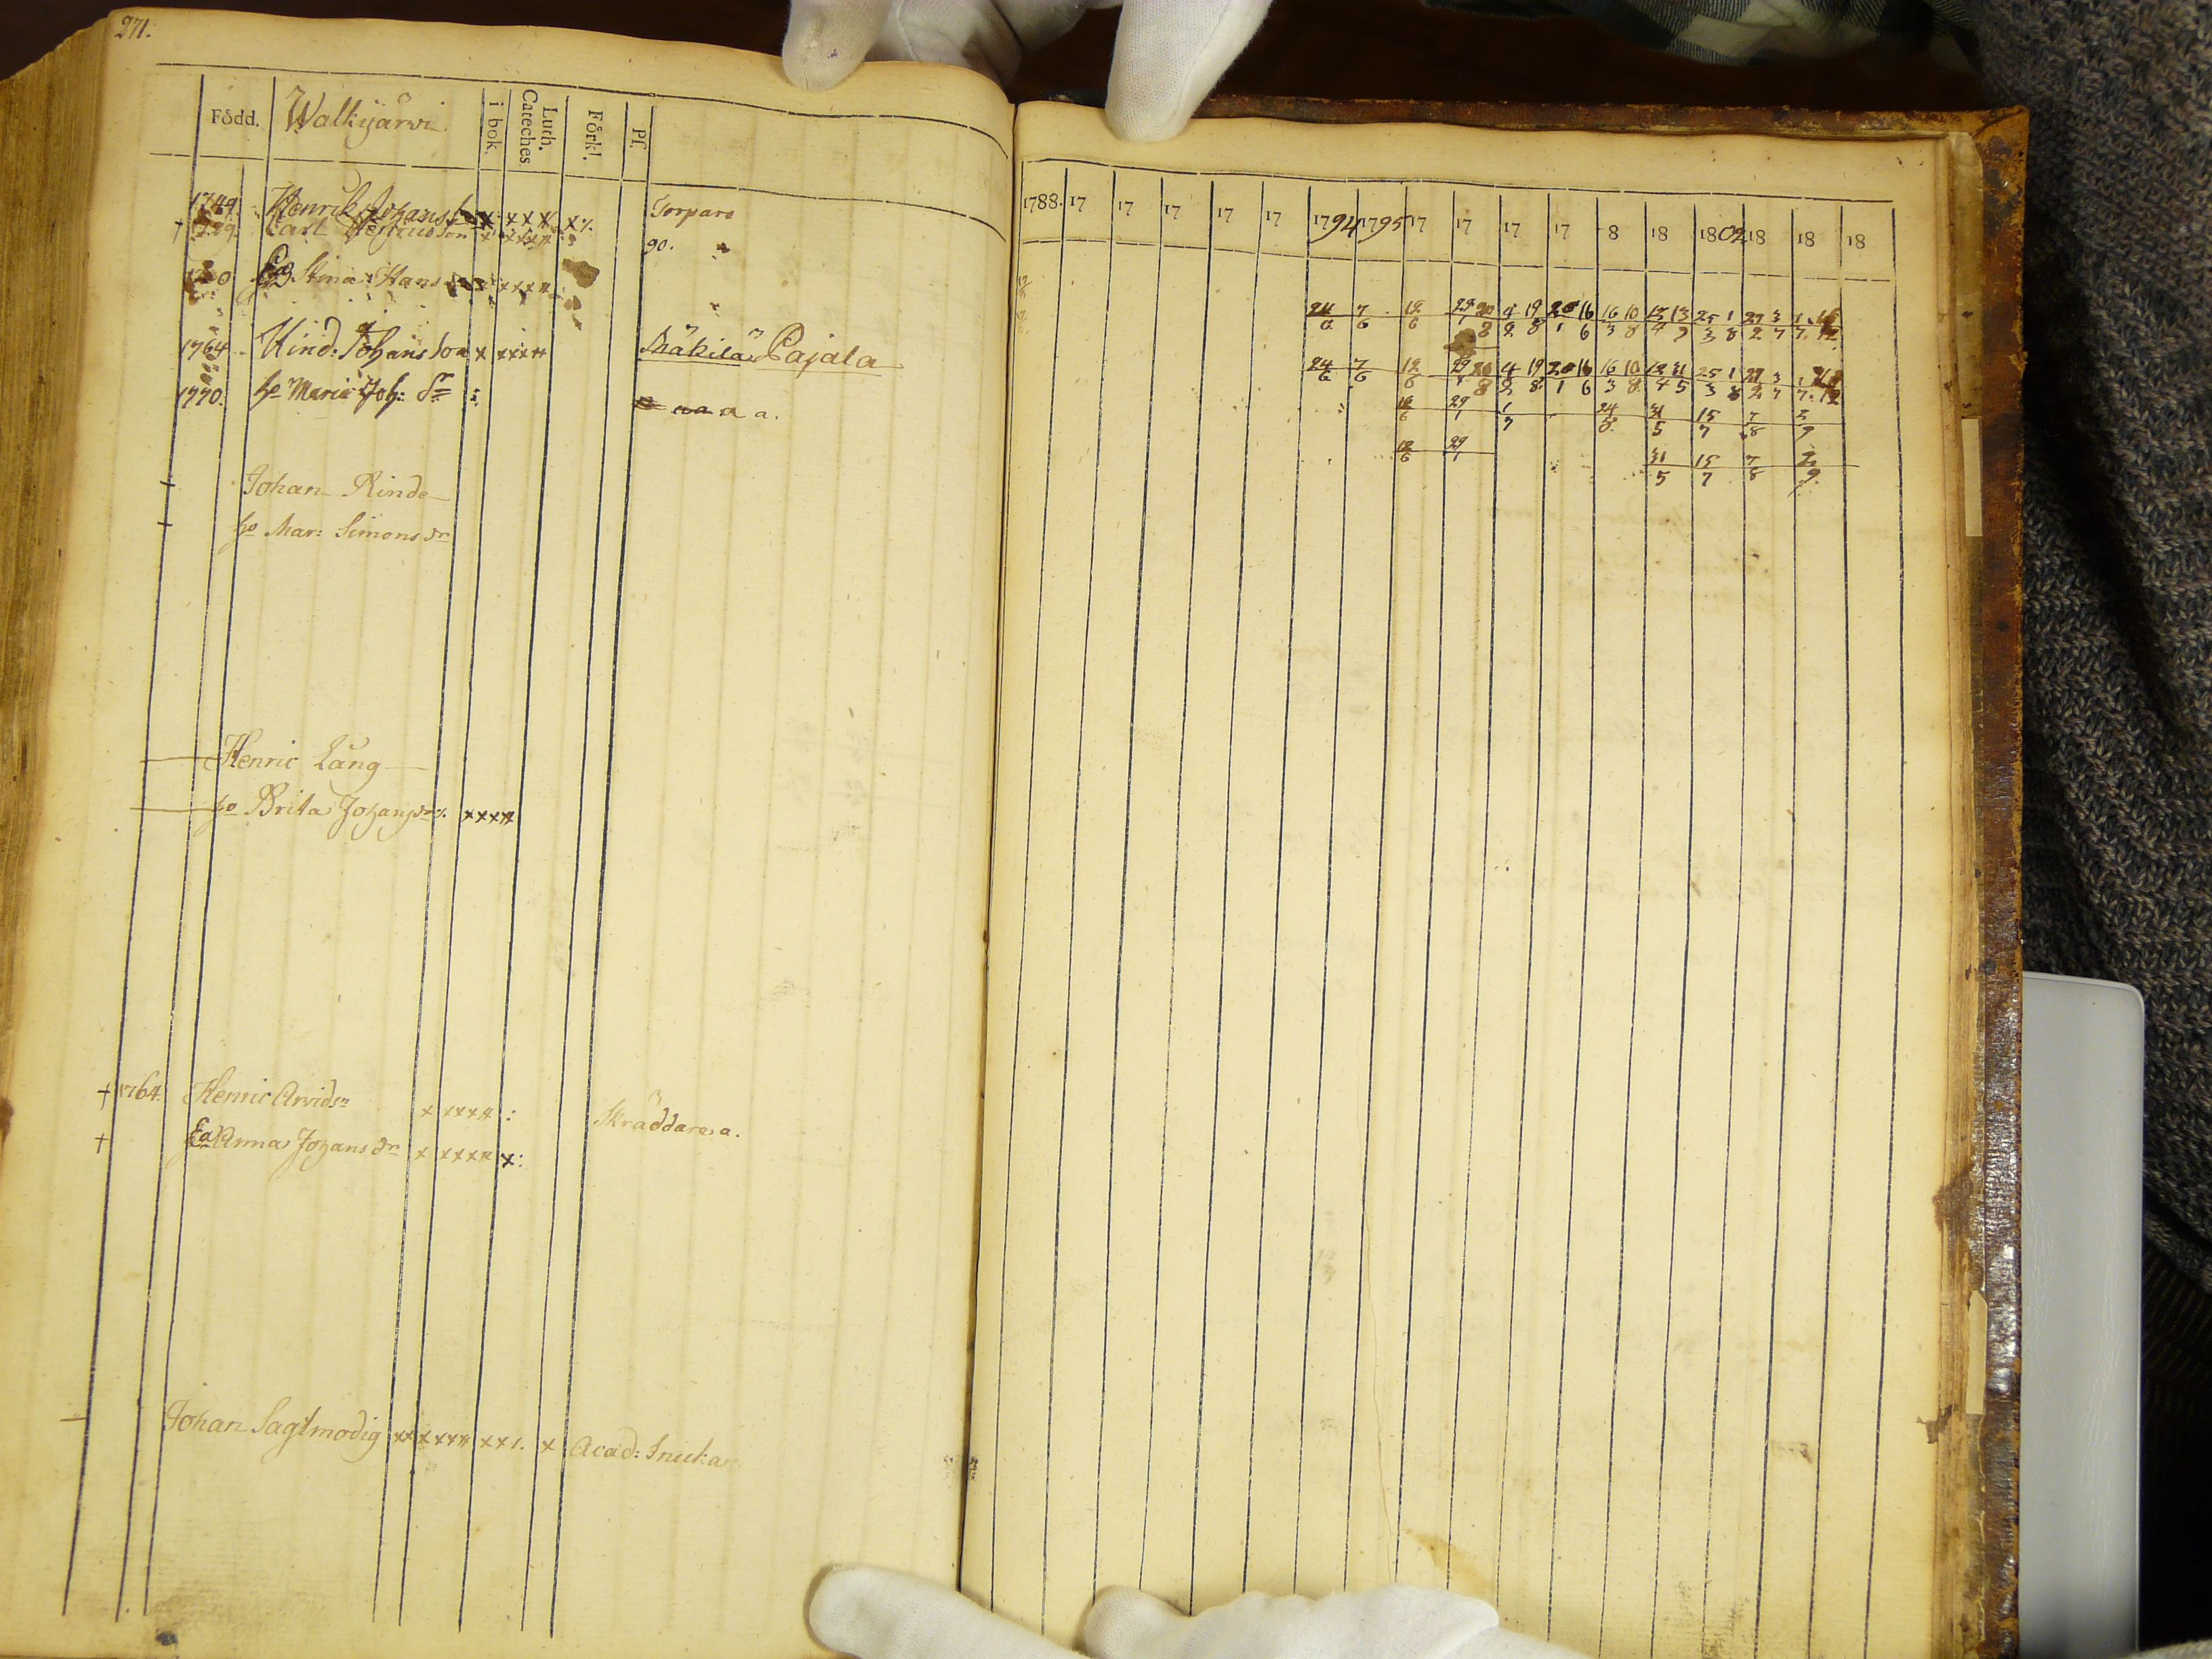 271.
Född. Walkijärwi i bok. Luth. Cateches. Förkl. Pf.
1788. 17 17 17 17 17 1794 1795 17 17 17 17 18 18 1802 18 18 18
1749. Henrik Johansson x xxx x%. Torpare
† Carl xxxx 90.
Stina Hans xxxx
24/6 7/6 12/6 29/1 4/2 19/8 20/1 16/6 16/3 10/8 25/3 1/8 27/2 3/7
1764 Hind: Johansson x xxxx Mäkilä Pajala
24/6 7/6 12/6 29/1 4/2 19/8 20/1 16/6 16/3 10/8 12/4 31/5 25/3 1/8 27/2 3/7
1770. ho Maria Joh: dr a.
12/6 29/1 1/7 24/8 31/5 15/7 7/8 2/9
12/6 29/1 31/5 15/7 7/8 2/9
Johan Rinde
ho Mar: Simons dr
Henric Lång
ho Brita Johans dr xxxx
† 1764. Henric Arvids n x xxxx : Skräddare a.
† Ea Anna Johans dr x xxxx x:
Johan Sagtmodig xx xxxx xx x Acad: Snickar